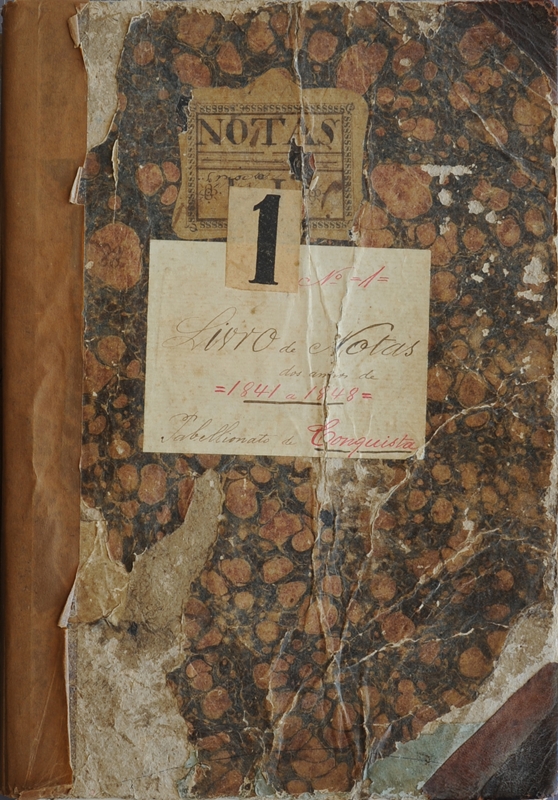 NOTAS
1
Nº =1=
Livro de Notas
dos annos de
=1841 a 1848=
Tabellionato de Conquista